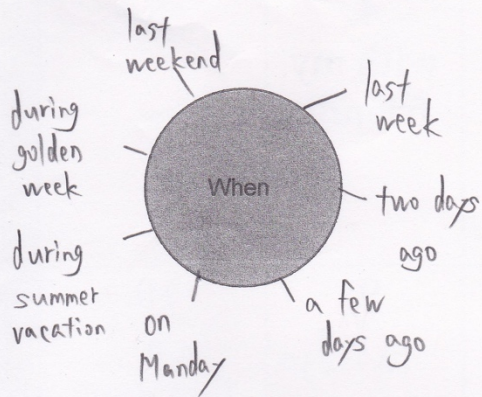 last
weekend
last
week
two days
ago
a few
days ago
on
Manday
during
summer
vacation
during
golden
week
When